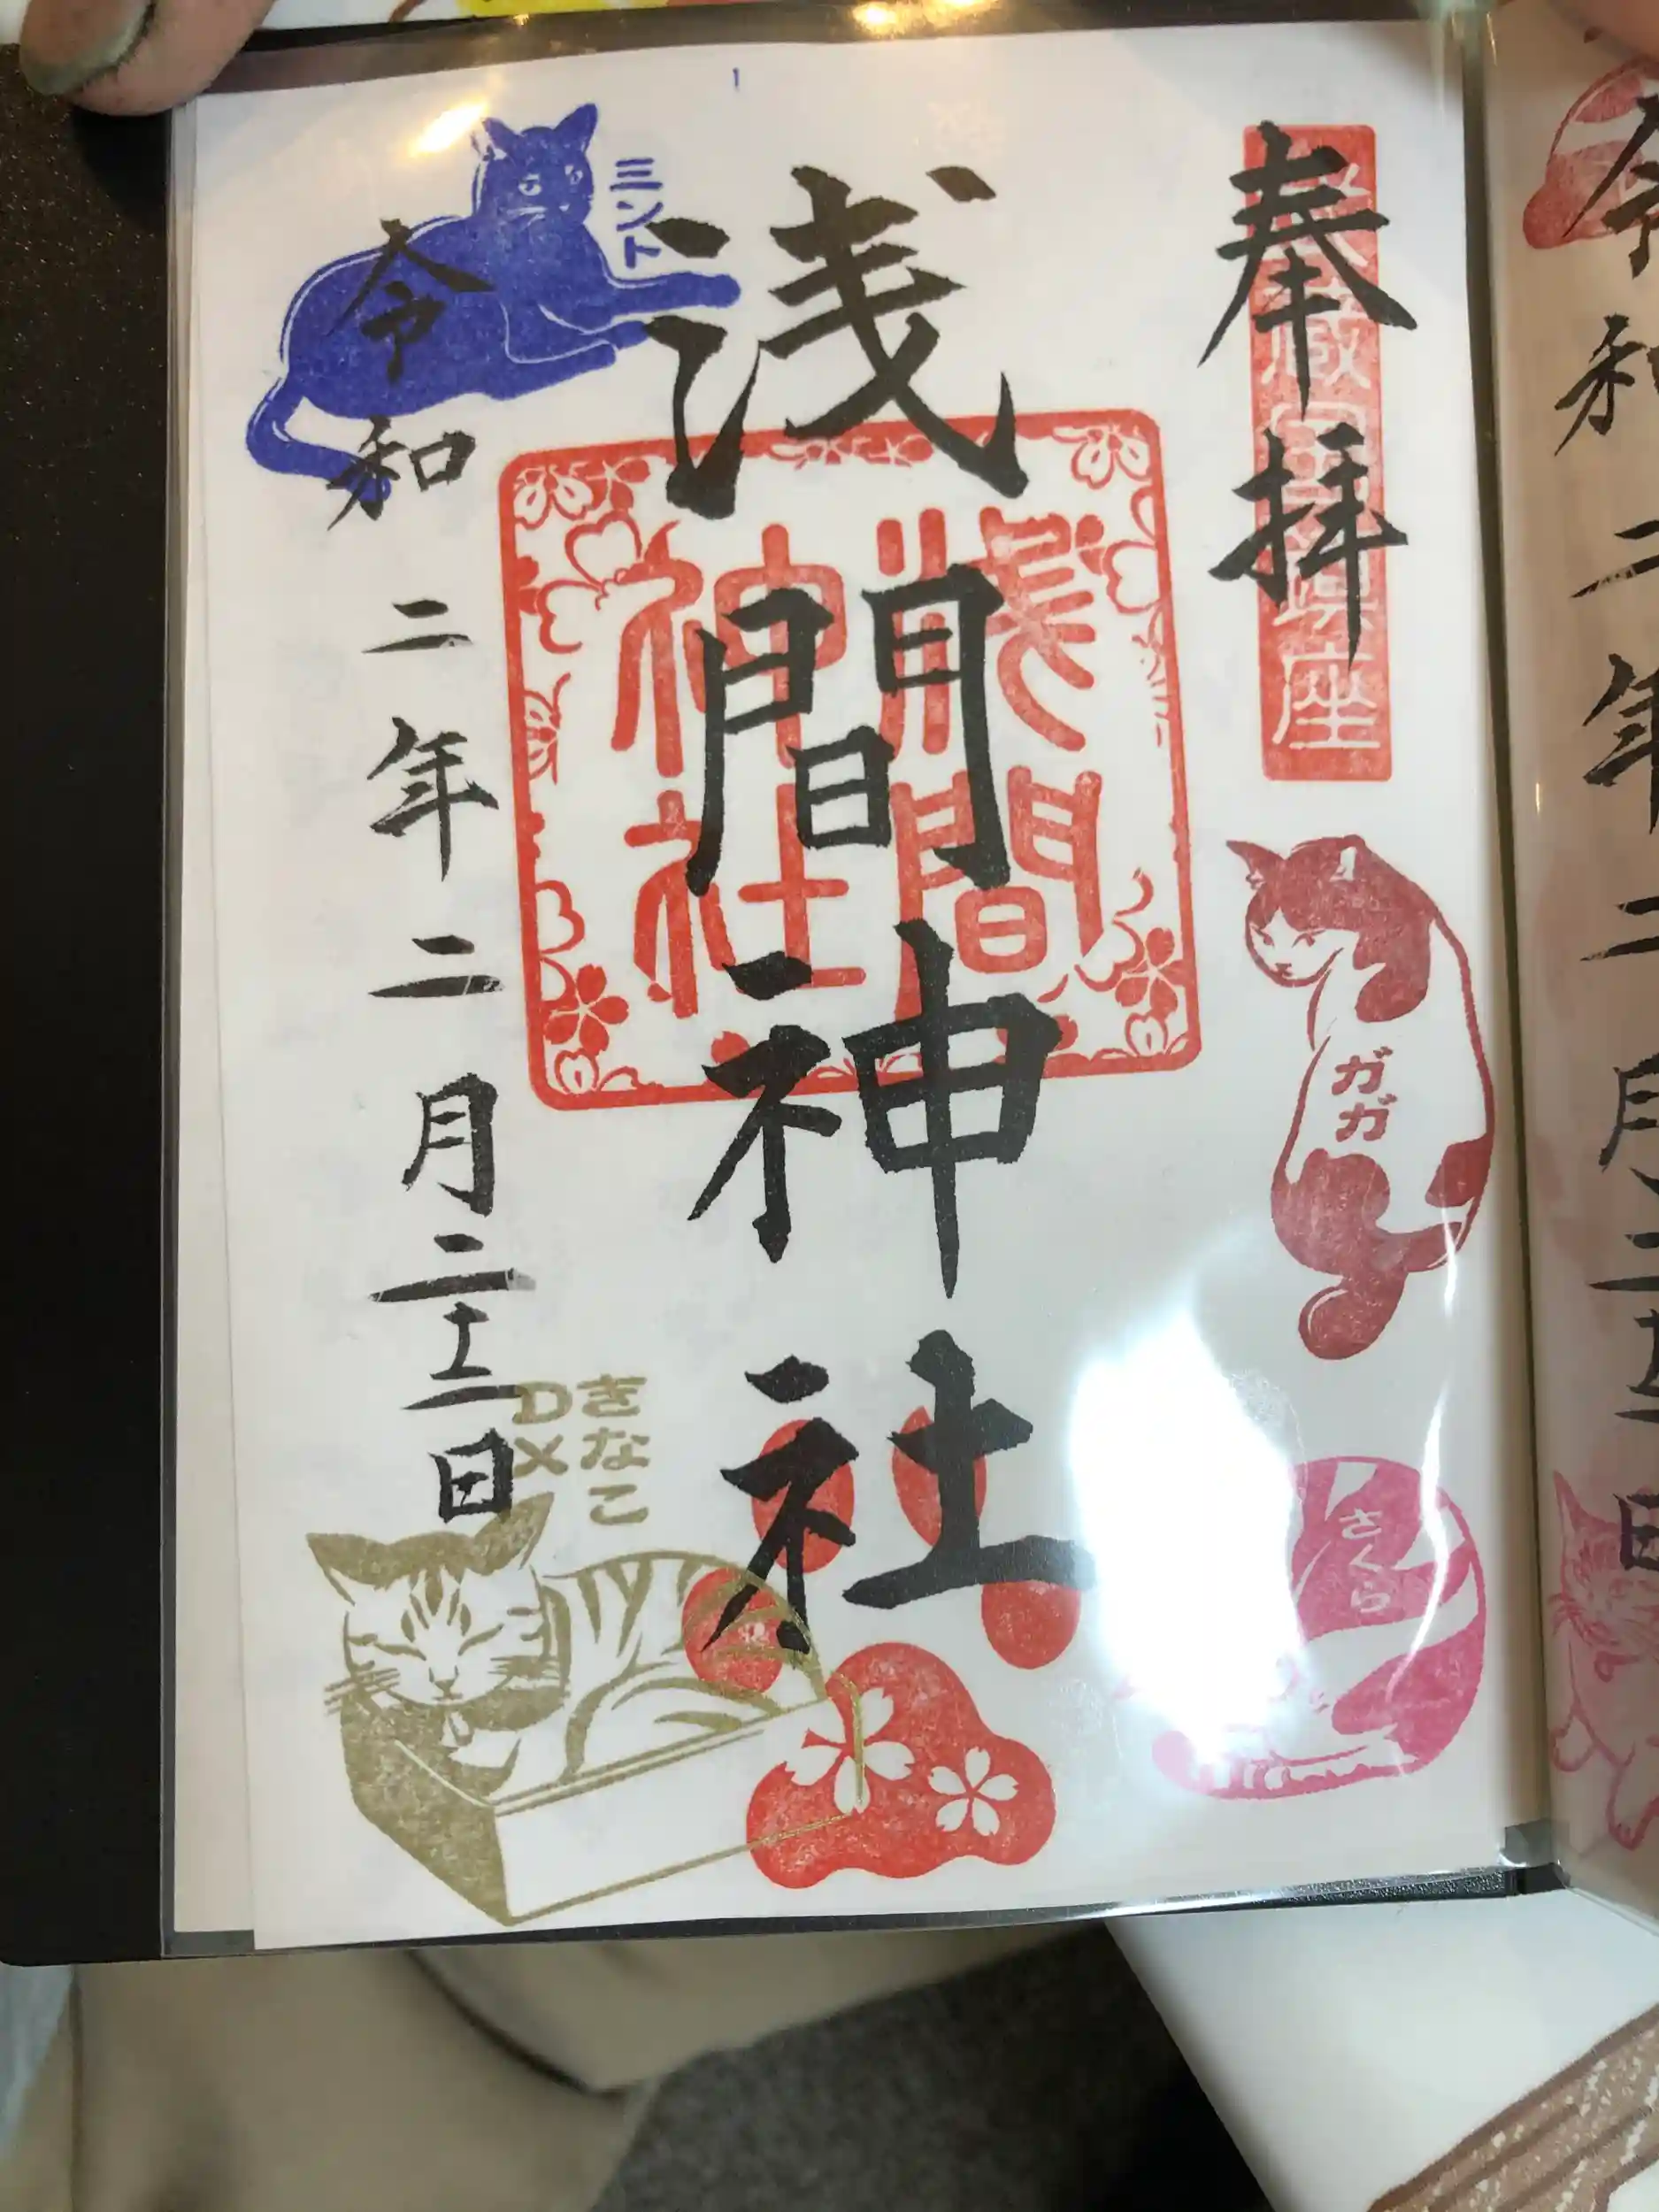 奉拝
武蔵國鎮座
浅間神社
淺間
神社
令和二年二月二十二日
ミント
ガガ
さくら
きなこ
DX
令和二年二月二十二日